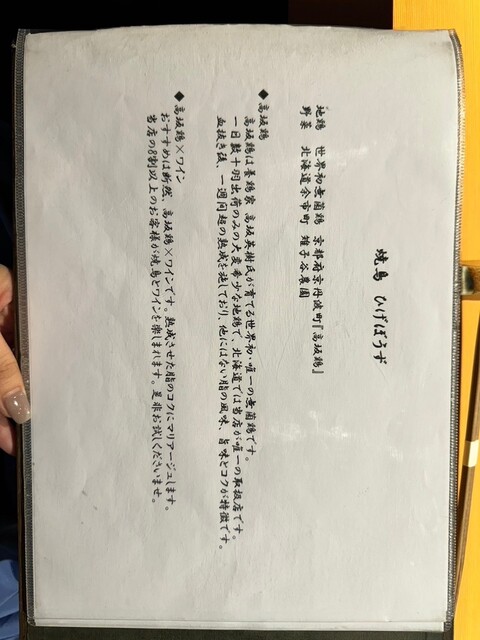 焼鳥 ひげぼうず
地鶏 世界初無菌鶏 京都府京丹波町『高坂鶏』
野菜 北海道余市町 雉子谷農園
◆高坂鶏
高坂鶏は養鶏家、高坂英樹氏が育てる世界初・唯一の無菌鶏です。
一日数十羽出荷のみの大変希少な地鶏で、北海道では当店が唯一の取扱店です。
血抜き後、一週間超の熟成を施しており、他にはない脂の風味、旨味とコクが特徴です。
◆高坂鶏×ワイン
おすすめは断然、高坂鶏×ワインです。熟成させた脂のコクにマリアージュします。
当店の8割以上のお客様が焼鳥とワインを楽しまれます。是非お試しくださいませ。